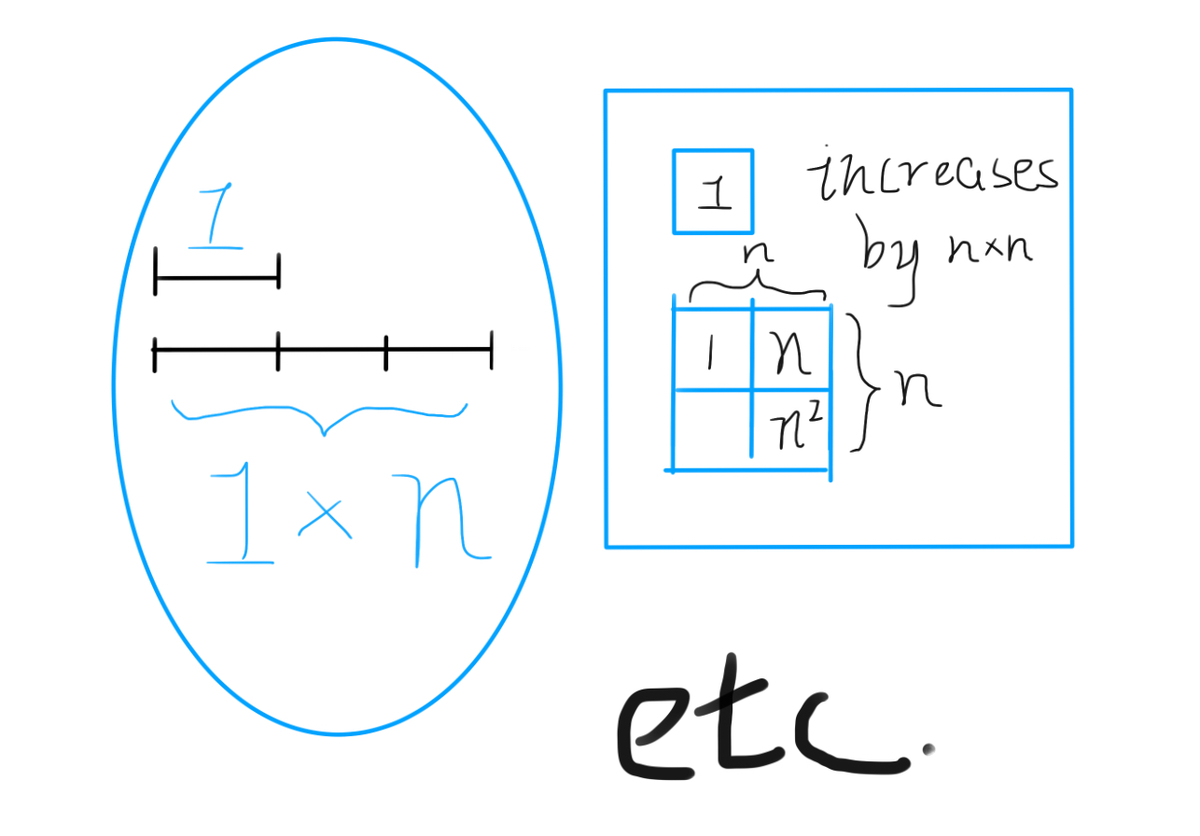 1
1 × n
1 increases
by n×n
n
1 n
n²
n
etc.